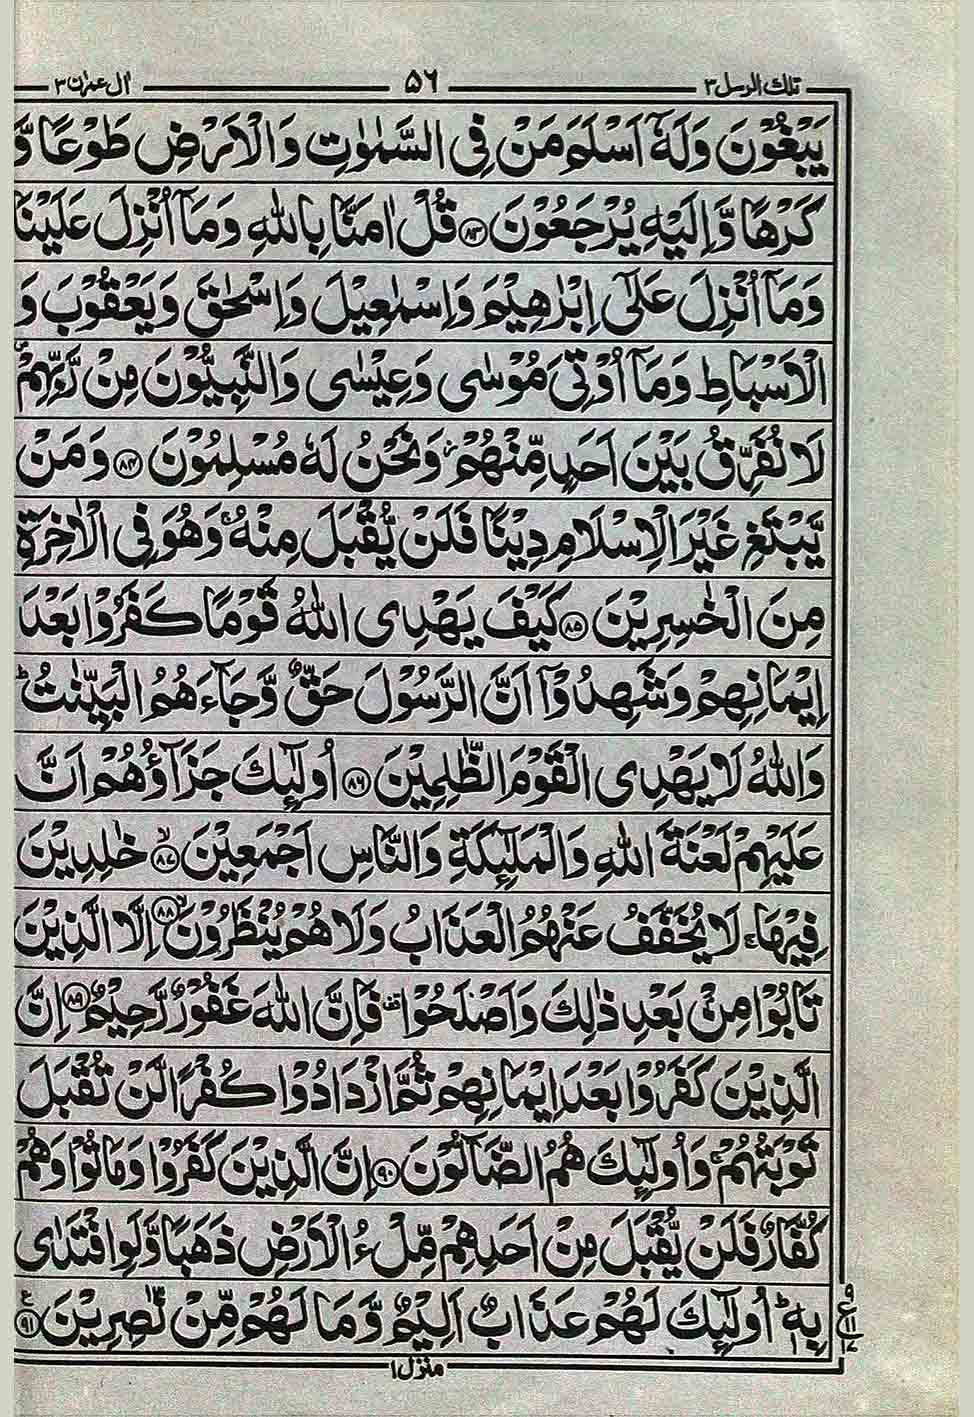 تلك الرسل ٣ ٥٦ ال عمرٰن ٣
يَبْغُوْنَ وَلَهٗۤ اَسْلَمَ مَنْ فِى السَّمٰوٰتِ وَالْاَرْضِ طَوْعًا وَّ
كَرْهًا وَّاِلَيْهِ يُرْجَعُوْنَ ﴿٨٣﴾ قُلْ اٰمَنَّا بِاللّٰهِ وَمَاۤ اُنْزِلَ عَلَيْنَا
وَمَاۤ اُنْزِلَ عَلٰۤى اِبْرٰهِيْمَ وَاِسْمٰعِيْلَ وَاِسْحٰقَ وَيَعْقُوْبَ وَ
الْاَسْبَاطِ وَمَاۤ اُوْتِىَ مُوْسٰى وَعِيْسٰى وَالنَّبِيُّوْنَ مِنْ رَّبِّهِمْ ۪
لَا نُفَرِّقُ بَيْنَ اَحَدٍ مِّنْهُمْ ؗ وَنَحْنُ لَهٗ مُسْلِمُوْنَ ﴿٨٤﴾ وَمَنْ
يَّبْتَغِ غَيْرَ الْاِسْلَامِ دِيْنًا فَلَنْ يُّقْبَلَ مِنْهُ ۚ وَهُوَ فِى الْاٰخِرَةِ
مِنَ الْخٰسِرِيْنَ ﴿٨٥﴾ كَيْفَ يَهْدِى اللّٰهُ قَوْمًا كَفَرُوْا بَعْدَ
اِيْمَانِهِمْ وَشَهِدُوْۤا اَنَّ الرَّسُوْلَ حَقٌّ وَّجَآءَهُمُ الْبَيِّنٰتُ ؕ
وَاللّٰهُ لَا يَهْدِى الْقَوْمَ الظّٰلِمِيْنَ ﴿٨٦﴾ اُولٰٓئِكَ جَزَآؤُهُمْ اَنَّ
عَلَيْهِمْ لَعْنَةَ اللّٰهِ وَالْمَلٰٓئِكَةِ وَالنَّاسِ اَجْمَعِيْنَ ۙ﴿٨٧﴾ خٰلِدِيْنَ
فِيْهَا ۚ لَا يُخَفَّفُ عَنْهُمُ الْعَذَابُ وَلَا هُمْ يُنْظَرُوْنَ ۙ﴿٨٨﴾ اِلَّا الَّذِيْنَ
تَابُوْا مِنْۢ بَعْدِ ذٰلِكَ وَاَصْلَحُوْا قف فَاِنَّ اللّٰهَ غَفُوْرٌ رَّحِيْمٌ ﴿٨٩﴾ اِنَّ
الَّذِيْنَ كَفَرُوْا بَعْدَ اِيْمَانِهِمْ ثُمَّ ازْدَادُوْا كُفْرًا لَّنْ تُقْبَلَ
تَوْبَتُهُمْ ۚ وَاُولٰٓئِكَ هُمُ الضَّآلُّوْنَ ﴿٩٠﴾ اِنَّ الَّذِيْنَ كَفَرُوْا وَمَاتُوْا وَهُمْ
كُفَّارٌ فَلَنْ يُّقْبَلَ مِنْ اَحَدِهِمْ مِّلْءُ الْاَرْضِ ذَهَبًا وَّلَوِ افْتَدٰى
بِهٖ ؕ اُولٰٓئِكَ لَهُمْ عَذَابٌ اَلِيْمٌ وَّمَا لَهُمْ مِّنْ نّٰصِرِيْنَ ﴿٩١﴾ ع
٩ ع ١١ ١٧
منزل ١